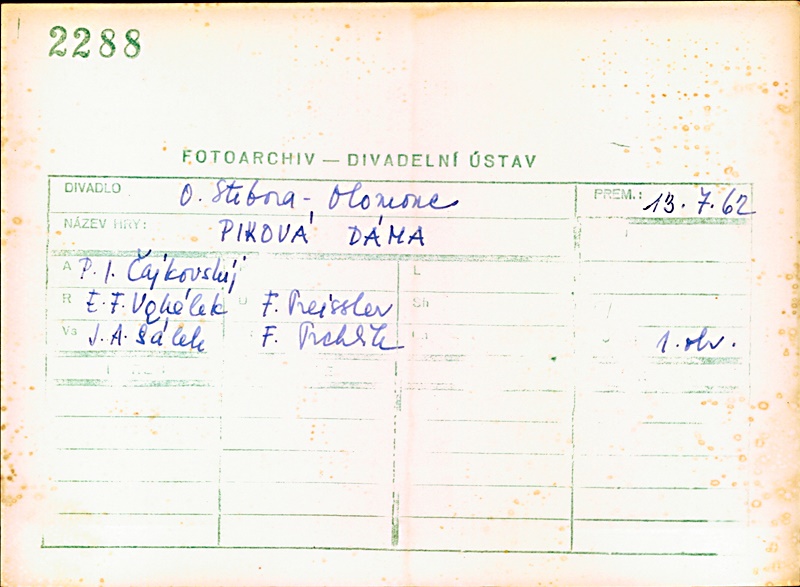 2288
FOTOARCHIV — DIVADELNÍ ÚSTAV
DIVADLO O. Stibora - Olomouc PREM.: 13. 7. 62
NÁZEV HRY: PIKOVÁ DÁMA
A P. I. Čajkovskij L
R E. F. Vokálek F. Preissler Sh
Vs J. A. Šálek F. 1. obr.